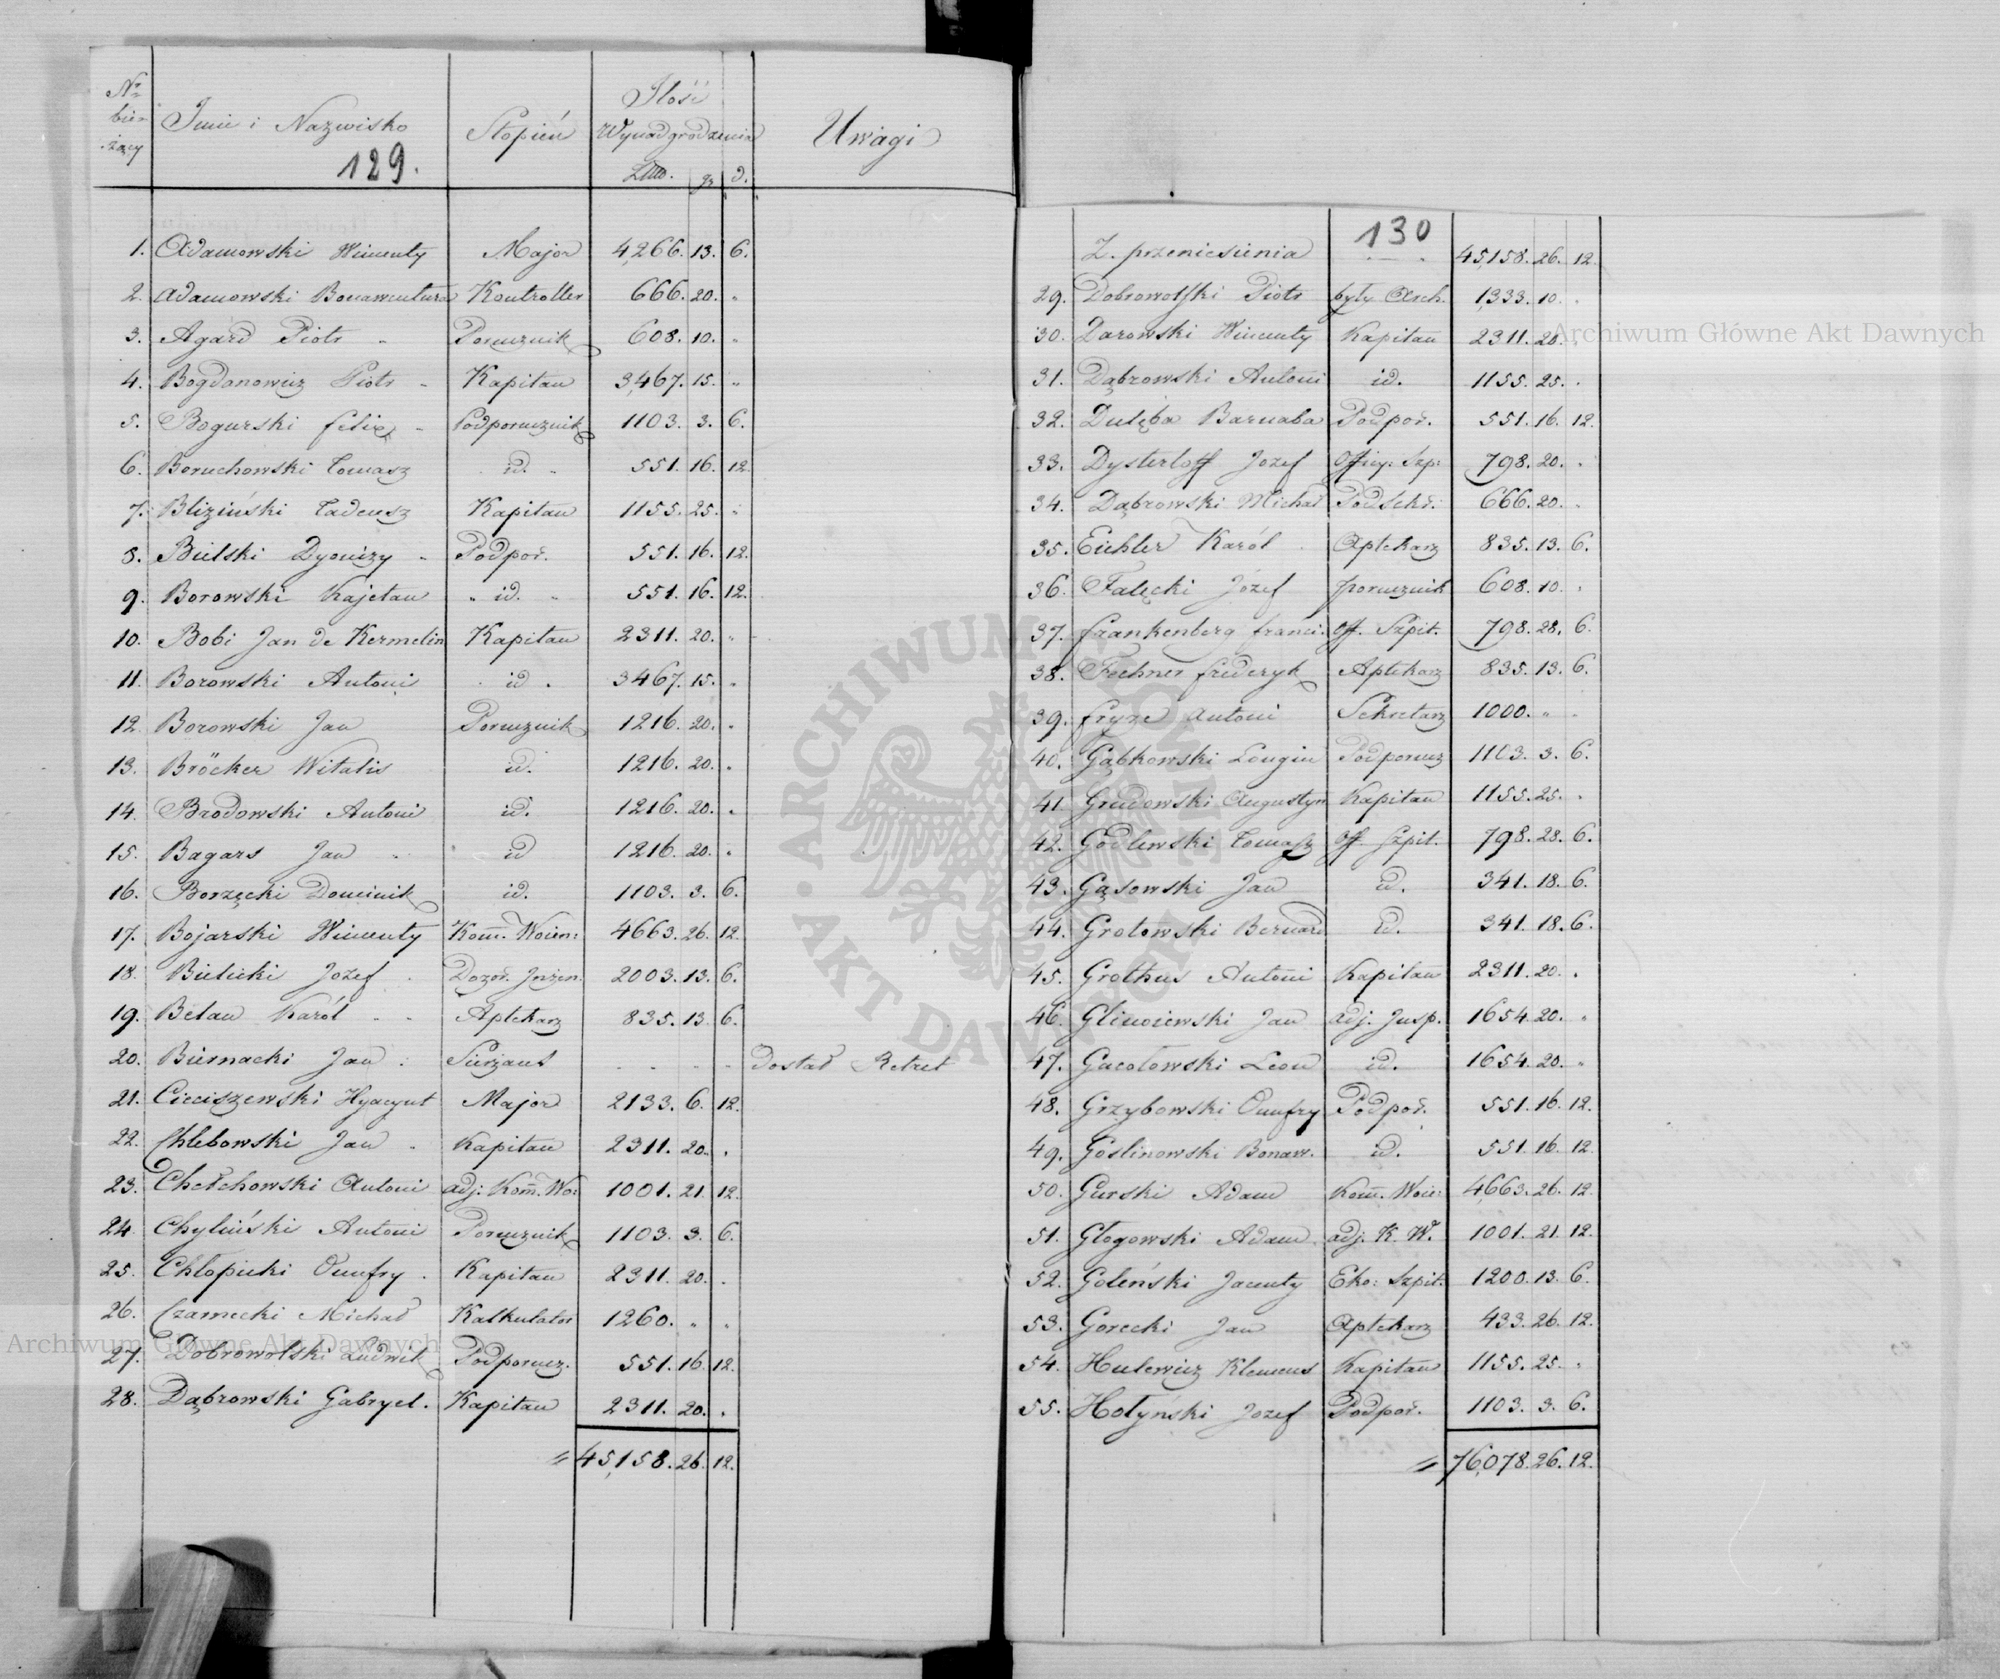 No bieżący Imie i Nazwisko Stopień Ilość Wynadgrodzenia Uwagi
129.
Złtto. gr d.
1. Adamowski Wincenty Major 4,266. 13. 6.
2. Adamowski Bonawentura Kontroller 666. 20. "
3. Agard Piotr " Porucznik 608. 10. "
4. Bogdanowicz Piotr " Kapitan 3,467. 15. "
5. Bogurski felix " Podporucznik 1103. 3. 6.
6. Boruchowski Tomasz id. " 551. 16. 12.
7. Bliziński Tadeusz Kapitan 1155. 25. "
8. Bielski Dyonizy " Podpor. 551. 16. 12.
9. Borowski Kajetan " id. " 551. 16. 12.
10. Bobi Jan de Kermelin Kapitan 2311. 20. "
11. Borowski Antoni id. 3467. 15. "
12. Borowski Jan Porucznik 1216. 20. "
13. Bröcker Witalis id. 1216. 20. "
14. Brodowski Antoni id. 1216. 20. "
15. Bagars Jan " id 1216. 20. "
16. Borzęcki Dominik id. 1103. 3. 6.
17. Bojarski Wincenty Kom. Woien: 4663. 26. 12.
18. Bielicki Jozef Dozor. Jnżen. 2003. 13. 6.
19. Belau Karól " " Aptekarz 835. 13. 6.
20. Biernacki Jan Sierżant " " " Dostał Retret
21. Cieciszewski Hyacynt Major 2133. 6. 12.
22. Chlebowski Jan Kapitan 2311. 20. "
23. Chełchowski Antoni adj: Kom. Wo: 1001. 21. 12.
24. Chyliński Antoni Porucznik 1103. 3. 6.
25. Chłopicki Onufry Kapitan 2311. 20. "
26. Czarnecki Michał Kalkulator 1260. " "
27. Dobrowolski Ludwik Podporucz. 551. 16. 12.
28. Dąbrowski Gabryel. Kapitan 2311. 20. "
= 45,158. 26. 12.
130
Z przeniesienia 45,158. 26. 12.
29. Dobrowolski Piotr były Arch. 1,333. 10. "
30. Darowski Wincenty Kapitan 2311. 20. "
31. Dąbrowski Antoni id. 1155. 25. "
32. Dulęba Barnaba Podpor. 551. 16. 12.
33. Dysterloff Jozef Officy: Szp: 798. 20. "
34. Dąbrowski Michał Podsekr: 666. 20. "
35. Eichler Karól Aptekarz 835. 13. 6.
36. Falęcki Józef porucznik 608. 10. "
37. frankenberg franci. Off. Szpit. 798. 28. 6.
38. Fechner frederyk Aptekarz 835. 13. 6.
39. fryze Antoni Sekretarz 1000. " "
40. Gąbkowski Longin Podporucz 1103. 3. 6.
41. Grudowski Augustyn Kapitan 1155. 25. "
42. Godlewski Tomasz Off. Szpit. 798. 28. 6.
43. Gąsowski Jan id. 341. 18. 6.
44. Grotowski Bernard id. 341. 18. 6.
45. Grothus Antoni Kapitan 2311. 20. "
46. Glinoiewski Jan adj. Jnsp. 1654. 20. "
47. Gacołowski Leon id. 1654. 20. "
48. Grzybowski Onufry Podpor. 551. 16. 12.
49. Goslinowski Bonaw. id. 551. 16. 12.
50. Gurski Adam Kom. Woie: 4,663. 26. 12.
51. Głogowski Adam adj. K. W. 1001. 21. 12.
52. Goleński Jacenty Eko: Szpit. 1200. 13. 6.
53. Gorecki Jan Aptekarz 433. 26. 12.
54. Hulewicz Klemens Kapitan 1155. 25. "
55. Hołyński Jozef Podpor. 1103. 3. 6.
= 76,078. 26. 12.
Archiwum Główne Akt Dawnych
ARCHIWUM GŁÓWNE AKT DAWNYCH
Archiwum Główne Akt Dawnych